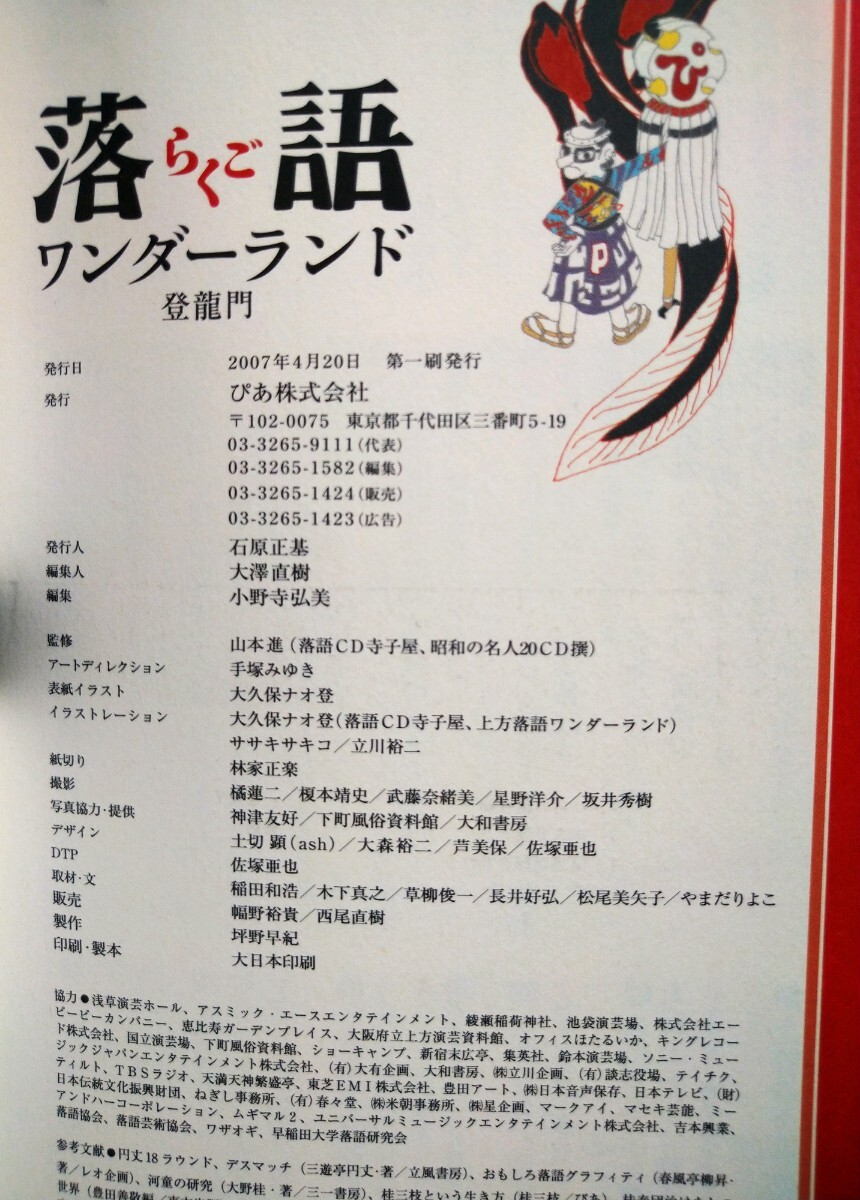 落らくご語
ワンダーランド
登龍門
ぴ
P
発行日 2007年4月20日 第一刷発行
発行 ぴあ株式会社
〒102-0075 東京都千代田区三番町5-19
03-3265-9111(代表)
03-3265-1582(編集)
03-3265-1424(販売)
03-3265-1423(広告)
発行人 石原正基
編集人 大澤直樹
編集 小野寺弘美
監修 山本進(落語CD寺子屋、昭和の名人20CD撰)
アートディレクション 手塚みゆき
表紙イラスト 大久保ナオ登
イラストレーション 大久保ナオ登(落語CD寺子屋、上方落語ワンダーランド)
ササキサキコ/立川裕二
紙切り 林家正楽
撮影 橘蓮二/榎本靖史/武藤奈緒美/星野洋介/坂井秀樹
写真協力・提供 神津友好/下町風俗資料館/大和書房
デザイン 土切 顕(ash)/大森裕二/芦美保/佐塚亜也
DTP 佐塚亜也
取材・文 稲田和浩/木下真之/草柳俊一/長井好弘/松尾美矢子/やまだりよこ
販売 幅野裕貴/西尾直樹
製作 坪野早紀
印刷・製本 大日本印刷
協力●浅草演芸ホール、アスミック・エースエンタテインメント、綾瀬稲荷神社、池袋演芸場、株式会社エー
ビーピーカンパニー、恵比寿ガーデンプレイス、大阪府立上方演芸資料館、オフィスほたるいか、キングレコー
ド株式会社、国立演芸場、下町風俗資料館、ショーキャンプ、新宿末広亭、集英社、鈴本演芸場、ソニー・ミュー
ジックジャパンエンタテインメント株式会社、(有)大有企画、大和書房、㈱立川企画、(有)談志役場、テイチク、
ティルト、TBSラジオ、天満天神繁盛亭、東芝EMI株式会社、豊田アート、㈱日本音声保存、日本テレビ、(財)
日本伝統文化振興財団、ねぎし事務所、(有)春々堂、㈱米朝事務所、㈱星企画、マークアイ、マセキ芸能、ミー
アンドハーコーポレーション、ムギマル2、ユニバーサルミュージックエンタテインメント株式会社、吉本興業、
落語協会、落語芸術協会、ワザオギ、早稲田大学落語研究会
参考文献●円丈18ラウンド、デスマッチ(三遊亭円丈・著/立風書房)、おもしろ落語グラフィティ(春風亭柳昇・
著/レオ企画)、河童の研究(大野桂・著/三一書房)、桂三枝という生き方(桂三枝/ぴあ)、
世界(豊田善敬編/